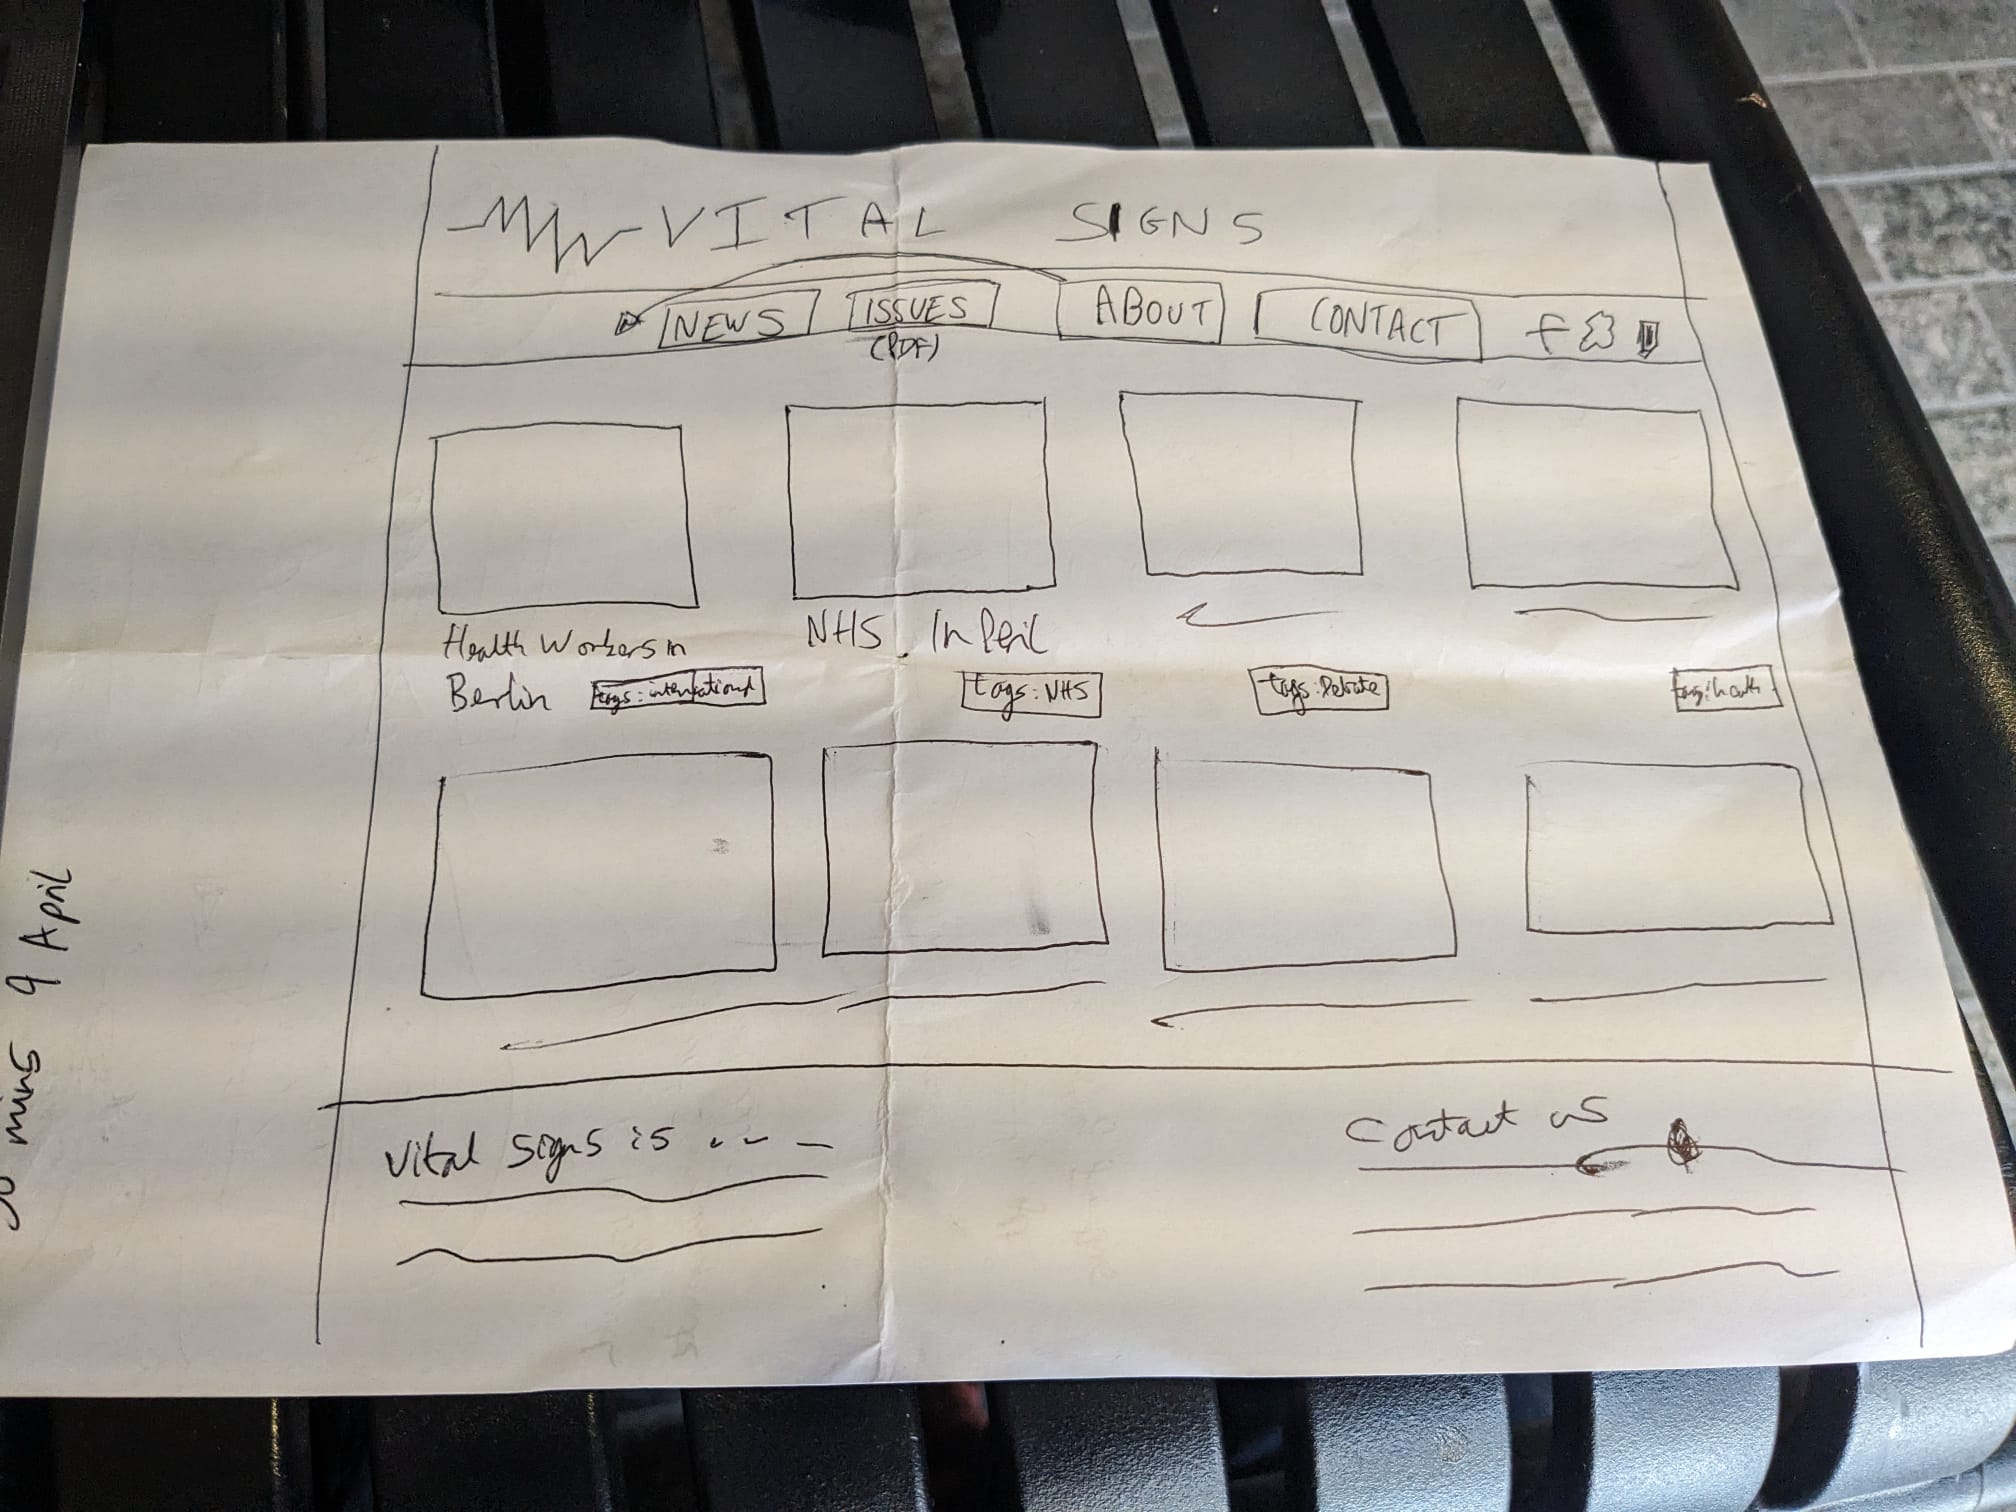 VITAL SIGNS
NEWS ISSUES ABOUT CONTACT f
(PDF)
Health Workers in
Berlin
tags: international
NHS In Peril
tags: NHS
tags: Debate
tags: health
Vital Signs is ...
Contact us
mins 9 April